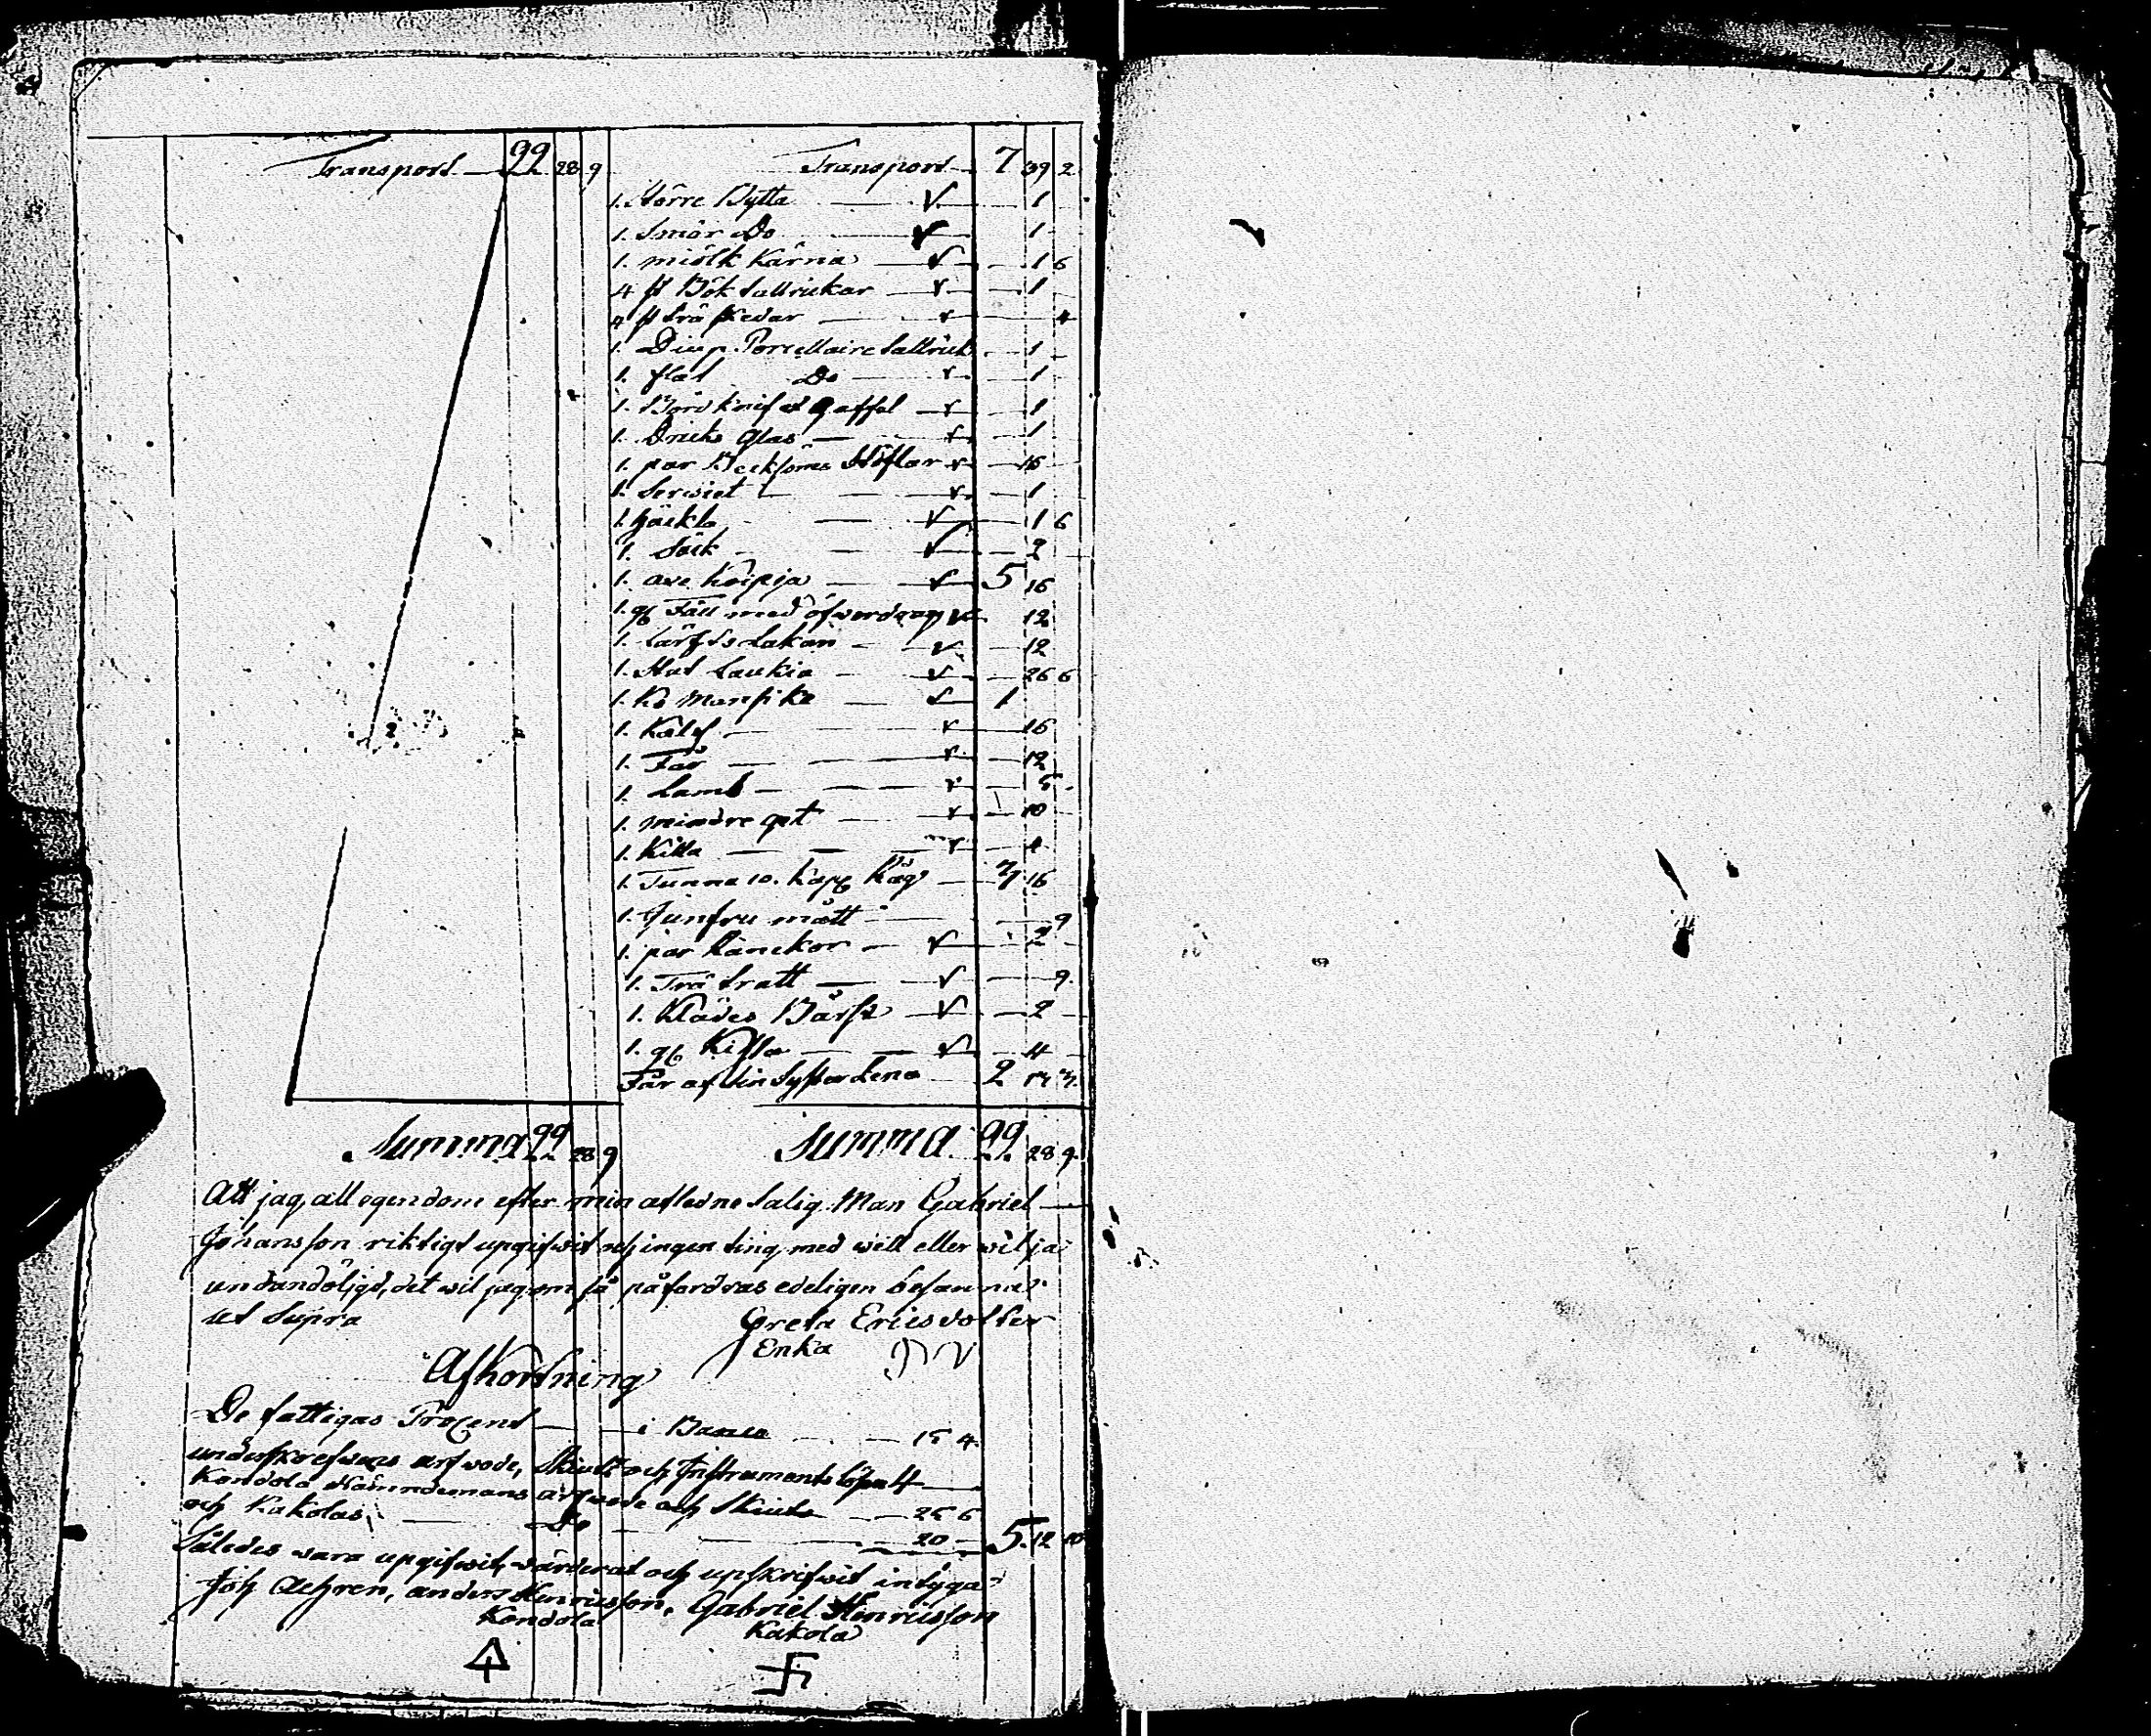 Transport 99 28 9
Transport 7 39 2
1. Större Bytta 1
1. Smör Do 1
1. miölk Kärna 1 6
4 st Bök tallrickar 1
4 st trä skedar 4
1. Diup Porcellaine tallrick 1
1. flat Do 1
1. Bord knif et gaffel 1
1. Dricks glas 1
1. par Becksöms Stöflar 16
1. Serwiet 1
1. Häckla 1 6
1. Säck 2
1. axe Koipja 5 16
1. gl Fäll med öfwerdrag 12
1. Lärfts Lakan 12
1. Stut Laukia 26 6
1. Ko Mansike 1
1. Kalf 16
1. Får 12
1. Lamb 5
1. mindre get 10
1. Killa 4
1. Tunna 10. kapp Råg 7 16
1. Junfru mått 9
1. par Känckor 2
1. Trä tratt 9
1. Klädes Bårst 2
1. gl Kista 4
Får af sin Syster Lena 2
Summa 99 28 9
Summa 99 28 9
Att jag all egendom efter min afledne Salig Man Gabriel
Johansson riktigt upgifwit och ingen ting med wett eller wilja
undandöljgt, det wil jag om så påfordras edeligen besanna
ut Supra Greta Ericsdotter
Enka
Afkortning
De fattigas Procent i Banco 15 4
underskrefwans arfwode, Skiuts och Instruments lösen 4
Kondola Nämndemans arfwode och Skiuts 25 6
och Kakolas Do 20 5. 12 10
Således wara upgifwit, wärderat och upskrifwit intyga
Joh Aehren, anders Hinricsson, Gabriel Hinricsson
Kondola Kakola